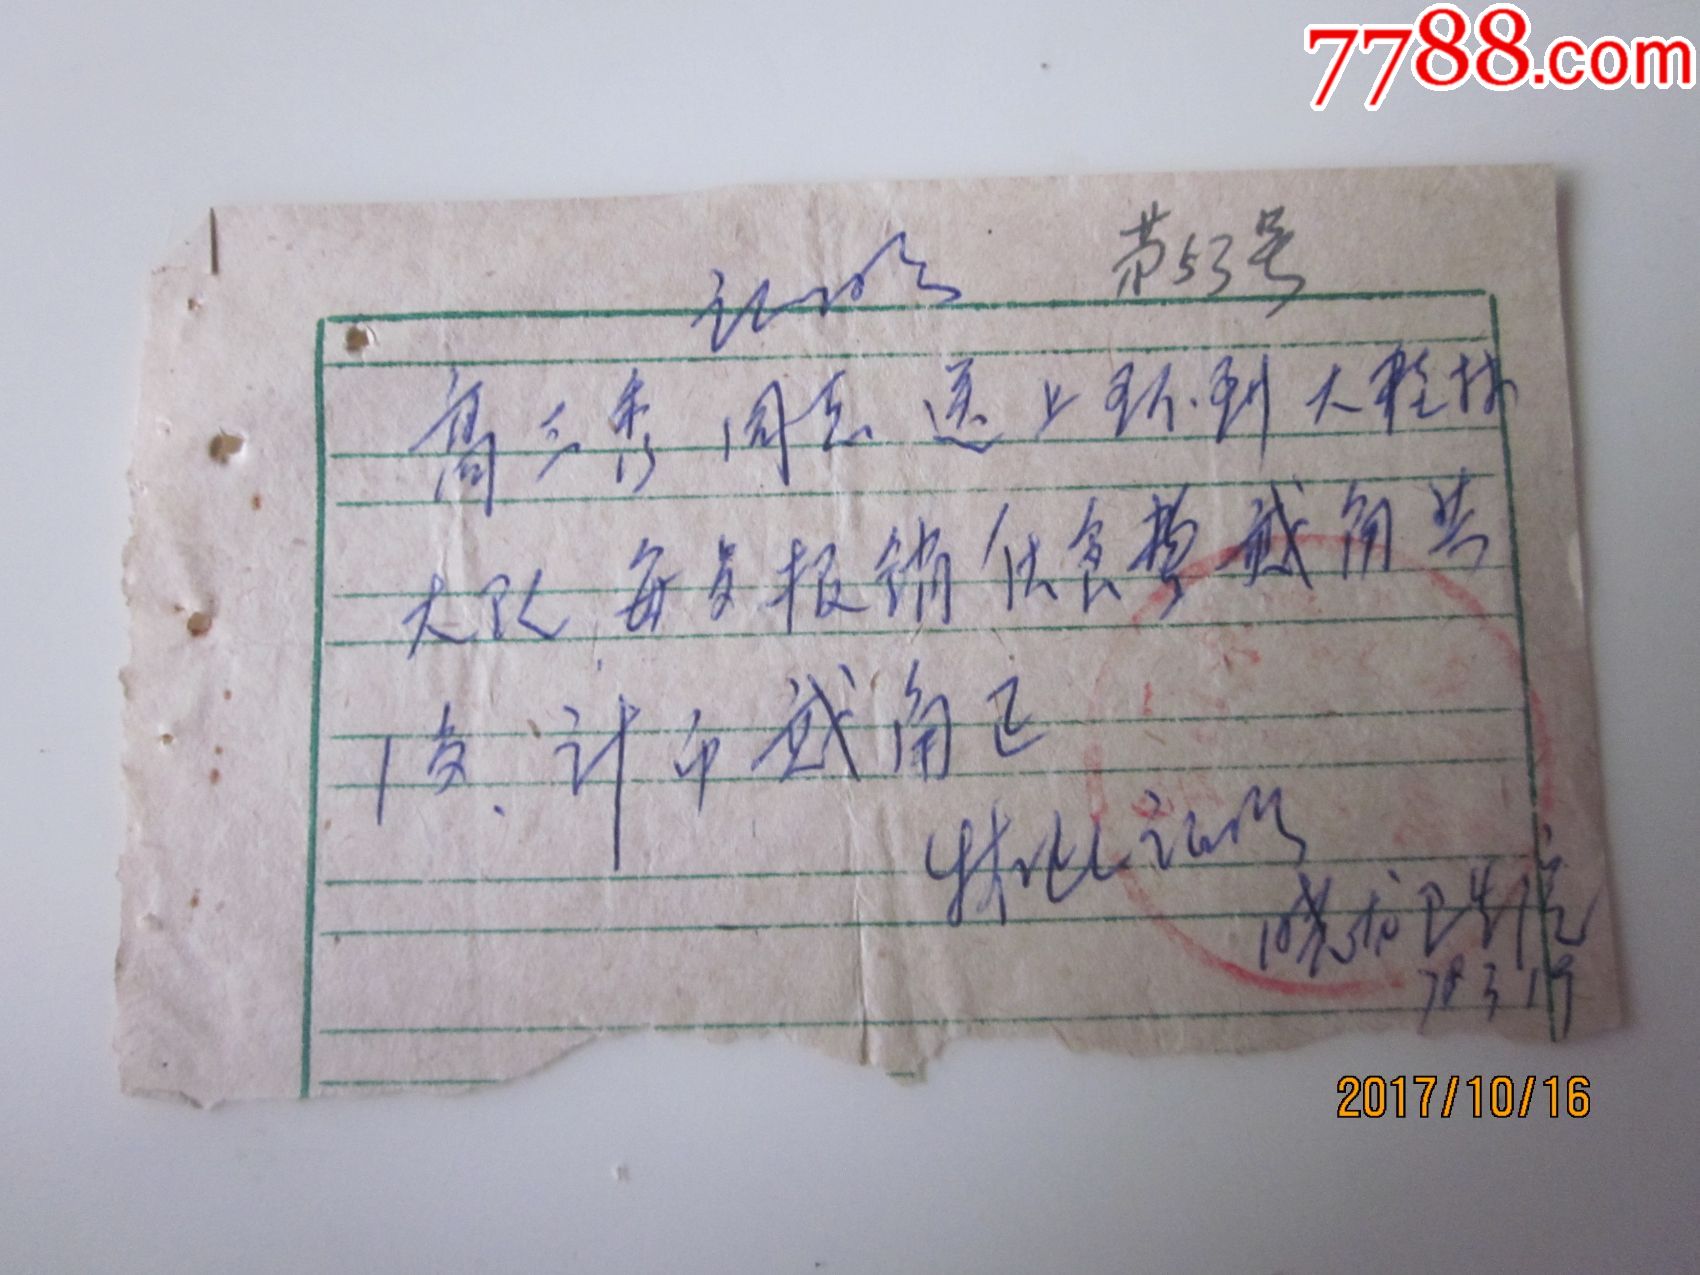 7788.com
第53号
证明
高三秀同志送上环到大程村
大队每天报销伙食费贰角共
1天.计币贰角正
特此证明
晓龙卫生院
78 3 19
2017/10/16